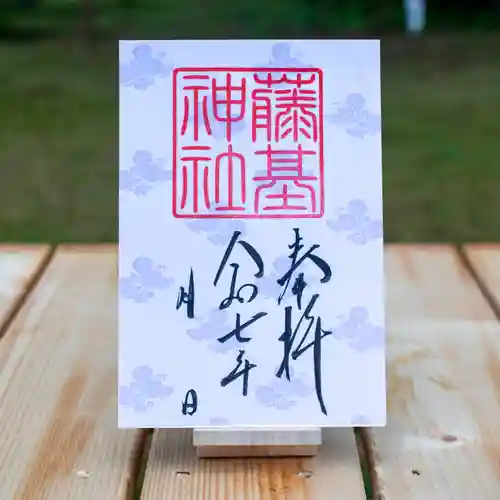 藤基
神社
奉拝
令和七年
月 日